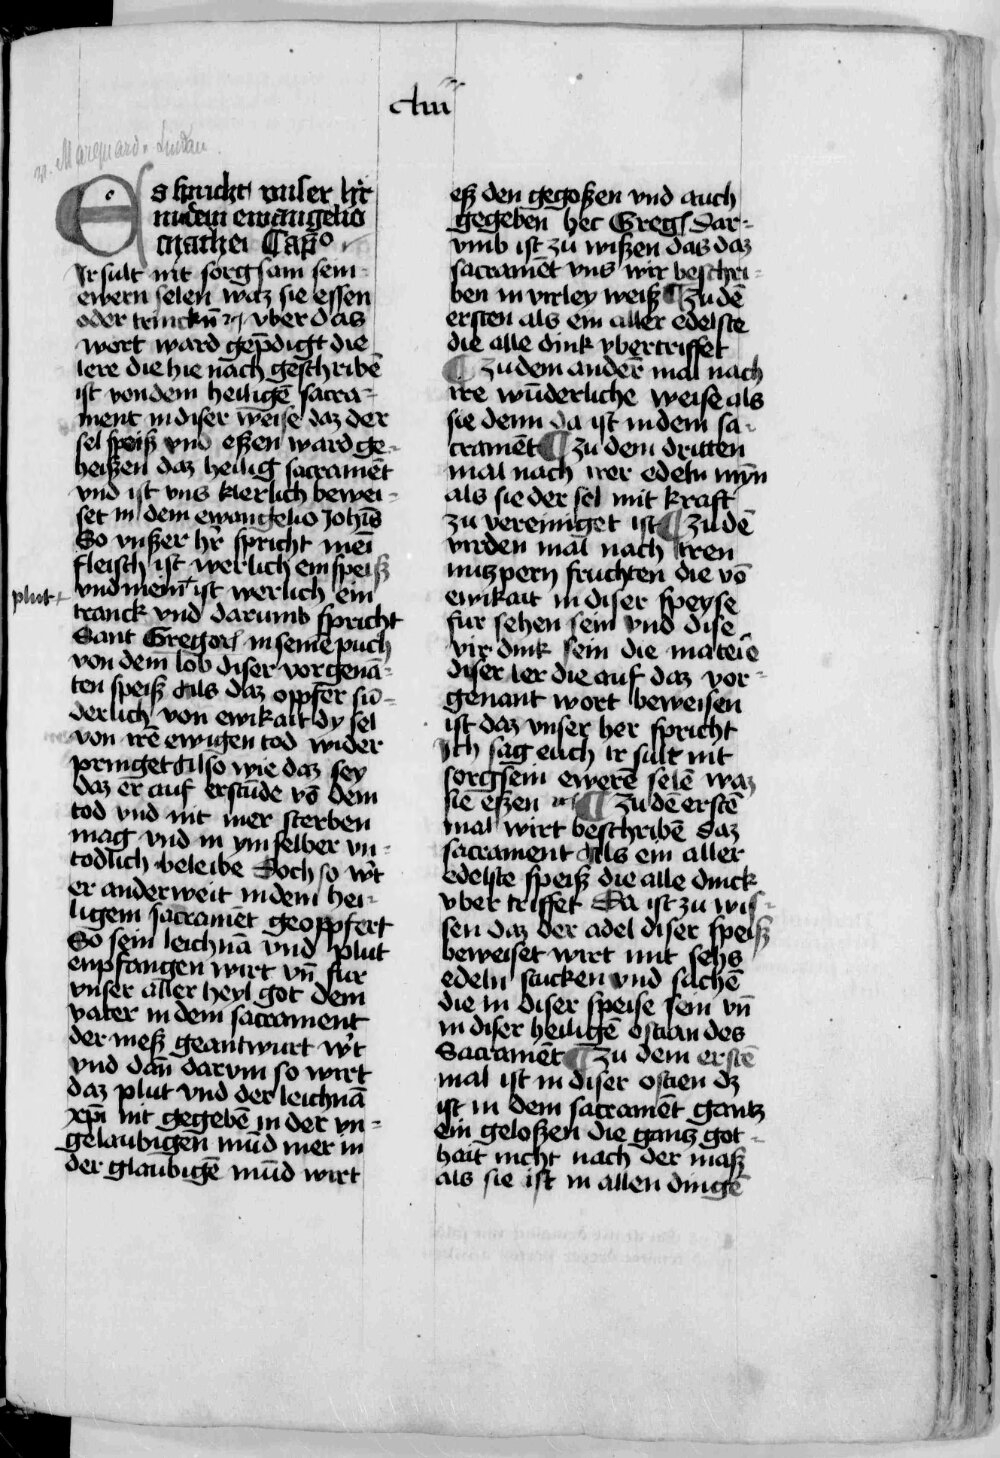 cliii
v. Marquard v. Lindau.
Es spricht vnser h̄r
in dem ewangelio
Mathei Cap̄o
Ir sult nit sorgsam sein
ewern selen waz sie essen
oder trinckn̄ ꝛc vber das
wort ward gep̄digt die
lere die hie nach geschribē
ist von dem heiligē sacra-
ment in diser weise daz der
sel speiß vnd eßen ward ge-
heißen daz heilig sacramēt
vnd ist vns klerlich bewei-
set in dem ewangelio Joh̄is
So vnßer h̄r spricht mei
fleisch ist werlich ein speiß
vnd mein ist werlich ein
plut
tranck vnd darumb spricht
Sant Gregori in seinē puch
von dem lob diser vorgenā-
ten speiß Als daz oppfer sū-
derlich von ewikait dy sel
von irē ewigen tod wider
pringet Also wie daz sey
daz er auf erstūde vō dem
tod vnd nit mer sterben
mag vnd in ym selber vn-
todlich beleibe Doch so w't
er anderweit in dem hei-
ligem sacramēt geoppfert
So sein leichnā vnd plut
enpfangen wirt vn̄ fur
vnser aller heyl got dem
vater in dem sacrament
der meß geantwurt w't
vnd dan̄ darvm so wirt
daz plut vnd der leichnā
xp̄i nit gegebē in der vn-
gelaubigen mūd mer in
der glaubigē mūd wirt
eß den gegoßen vnd auch
gegeben hec Greg Dar-
vmb ist zu wißen das daz
sacramēt vns wir beschri-
ben in virley weiß ¶ Zu dē
ersten als ein aller edelste
die alle dink vbertriffet
¶ zu dem ander̄ mal nach
ire wūderliche weise als
sie denn da ist in dem sa-
cramēt ¶ zu dem dritten
mal nach irer edeln myn̄
als sie der sel mit kraft
zu vereiniget ist ¶ zu dē
virden mal nach iren
nutzpern fruchten die vō
ewikait in diser speyse
fur sehen sein vnd dise
vir dink sein die materie
diser ler die auf daz vor-
genant wort beweisen
ist daz vnser her spricht
Ich sag euch ir sult nit
sorgsein ewerē selē waz
sie eßen ꝛc ¶ zu dē erstē
mal wirt beschribē daz
sacrament als ein aller
edelste speiß die alle dinck
vber triffet Da ist zu wis-
sen daz der adel diser speiß
beweiset wirt mit sehs
edeln stucken vnd sachē
die in diser speise sein vn̄
in diser heiligē ostian des
Sacramēt ¶ zu dem erstē
mal ist in diser ostien dz
ist in dem sacramēt gantz
ein geloßen die gantz got-
hait nicht nach der maß
als sie ist in allen dingē